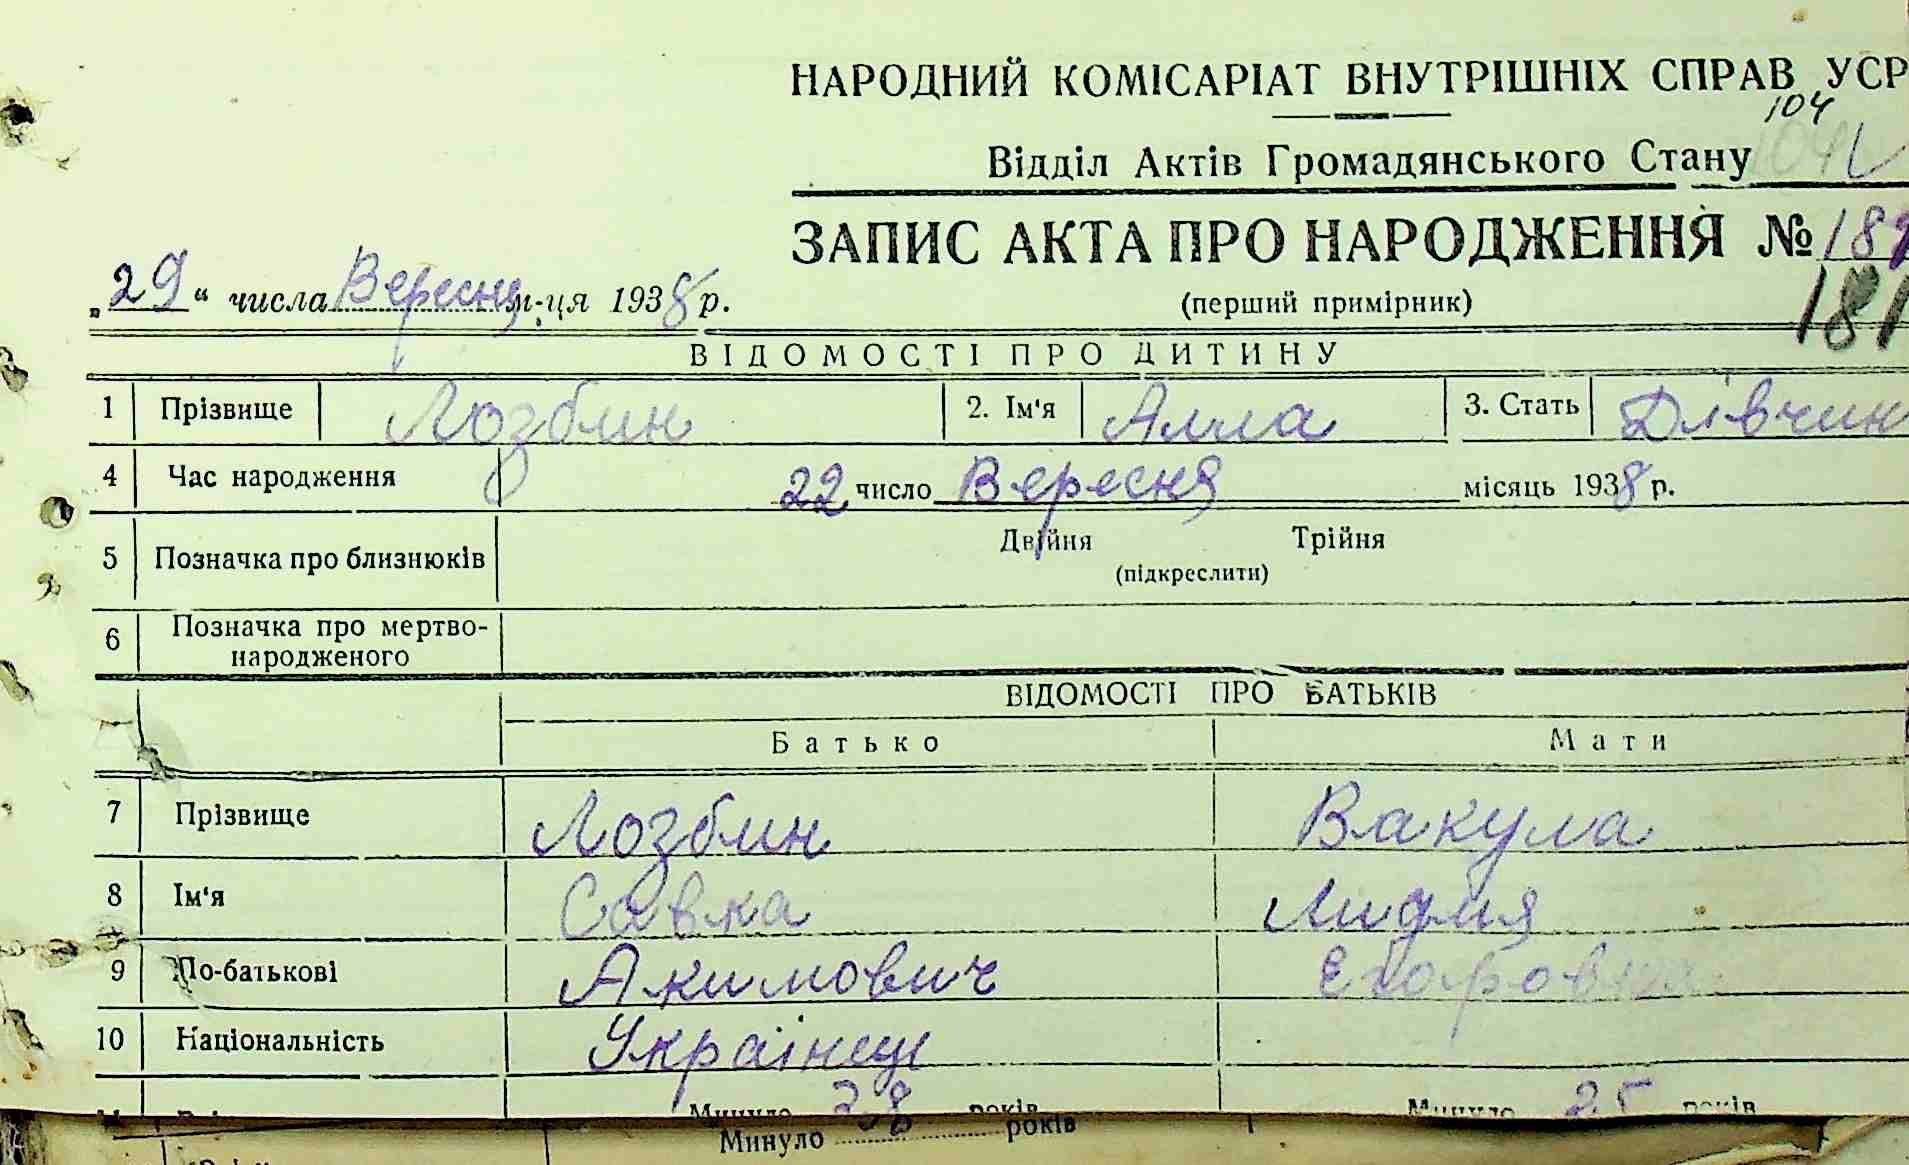 НАРОДНИЙ КОМІСАРІАТ ВНУТРІШНІХ СПРАВ УСР
104
Відділ Актів Громадянського Стану 104
ЗАПИС АКТА ПРО НАРОДЖЕННЯ № 181
„29“ числа Вересня м-ця 1938 р.
(перший примірник)
181
ВІДОМОСТІ ПРО ДИТИНУ
1 Прізвище Лозблин 2. Ім'я Алла 3. Стать Дівчин
4 Час народження 22 число Вересня місяць 1938 р.
5 Позначка про близнюків Двійня Трійня
(підкреслити)
6 Позначка про мертво-
народженого
ВІДОМОСТІ ПРО БАТЬКІВ
Батько Мати
7 Прізвище Лозблин Вакула
8 Ім'я Савка Лидия
9 По-батькові Акимович Егоровна
10 Національність Українець
Минуло 38 років Минуло 25 років
Минуло років